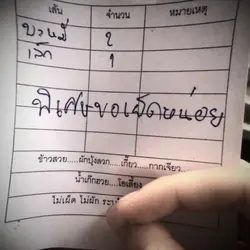 เส้น จำนวน หมายเหตุ
บะหมี่ 2
เล็ก 1
พิเศษขอเผ็ดหน่อย
ข้าวสวย.....ผักบุ้งลวก.....เกี๊ยว.....กากเจียว...
น้ำเก๊กฮวย.....โอเลี้ยง
ไม่เผ็ด ไม่ผัก